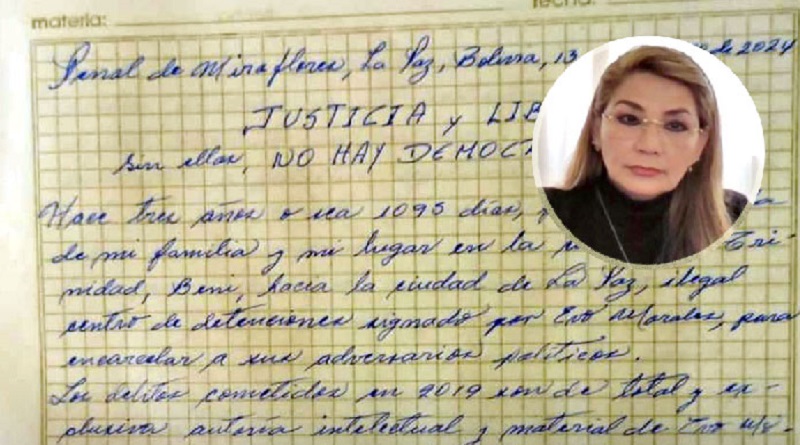 materia: fecha:
Penal de Miraflores, La Paz, Bolivia, 13 de 2024
JUSTICIA y LIB
sin ellas, NO HAY DEMOC
Hace tres años o sea 1095 días,
de mi familia y mi lugar en la Tri-
nidad, Beni, hacia la ciudad de La Paz, ilegal
centro de detenciones signado por Evo Morales, para
encarcelar a sus adversarios políticos.
Los delitos cometidos en 2019 son de total y ex-
clusiva autoría intelectual y material de Evo